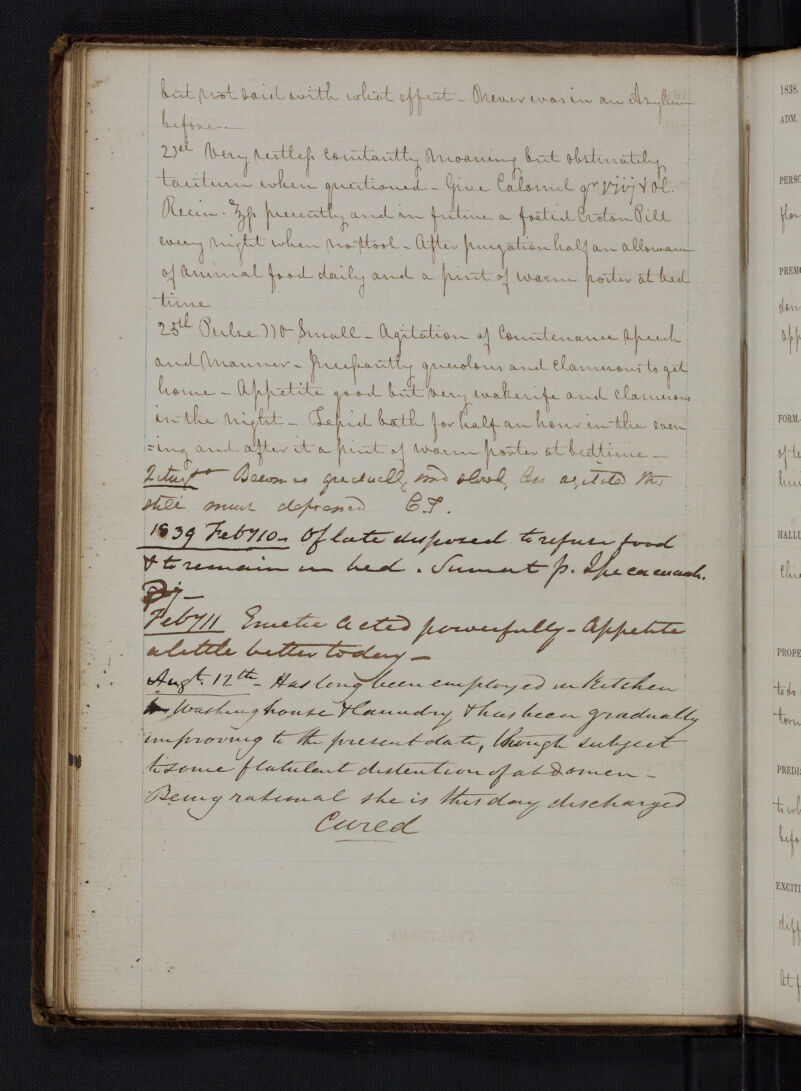 but not said with what effect - Never was in an Asylum
before -
23d Very restless constantly moaning but obstinately
taciturn when questioned - Give Calomel gr & Ol.
Ricin. presently and in future a foetid Croton Pill
every night when no stool - After purgation half an allowance
of animal food daily and a pint of warm porter at bed
time
25th Pulse small - Agitation of countenance speech
and manner - Incessantly querulous and clamorous to get
home - Appetite good but very wakerife and clamorous
in the night - Tepid bath for half an hour in the even
=ing and after it a pint of warm porter at bedtime -
2 Augt Becomes gradually less agitated tho
still much depressed
1839 Feby 10 - Of late disposed to refuse food
& to remain in bed. Sumat p. Ipecacuanh.
Feby 11 Emetic acted powerfully - Appetite
a little better today -
Augt. 12th - Has long been employed in Kitchen
Washing house & laundry, & has been gradually
improving to the present date, though subject
to some flatulent distention of abdomen -
Being rational she is this day discharged
Cured
1838.
ADM.
PERSO
PREMO
FORM.
HALLU
PROPE
PREDI
EXCITI